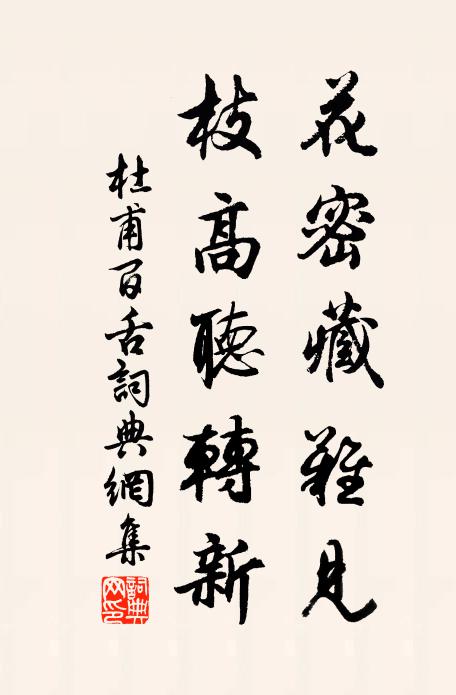 花密藏難見
枝高聽轉新
杜甫百舌詞典網集
詞典網印